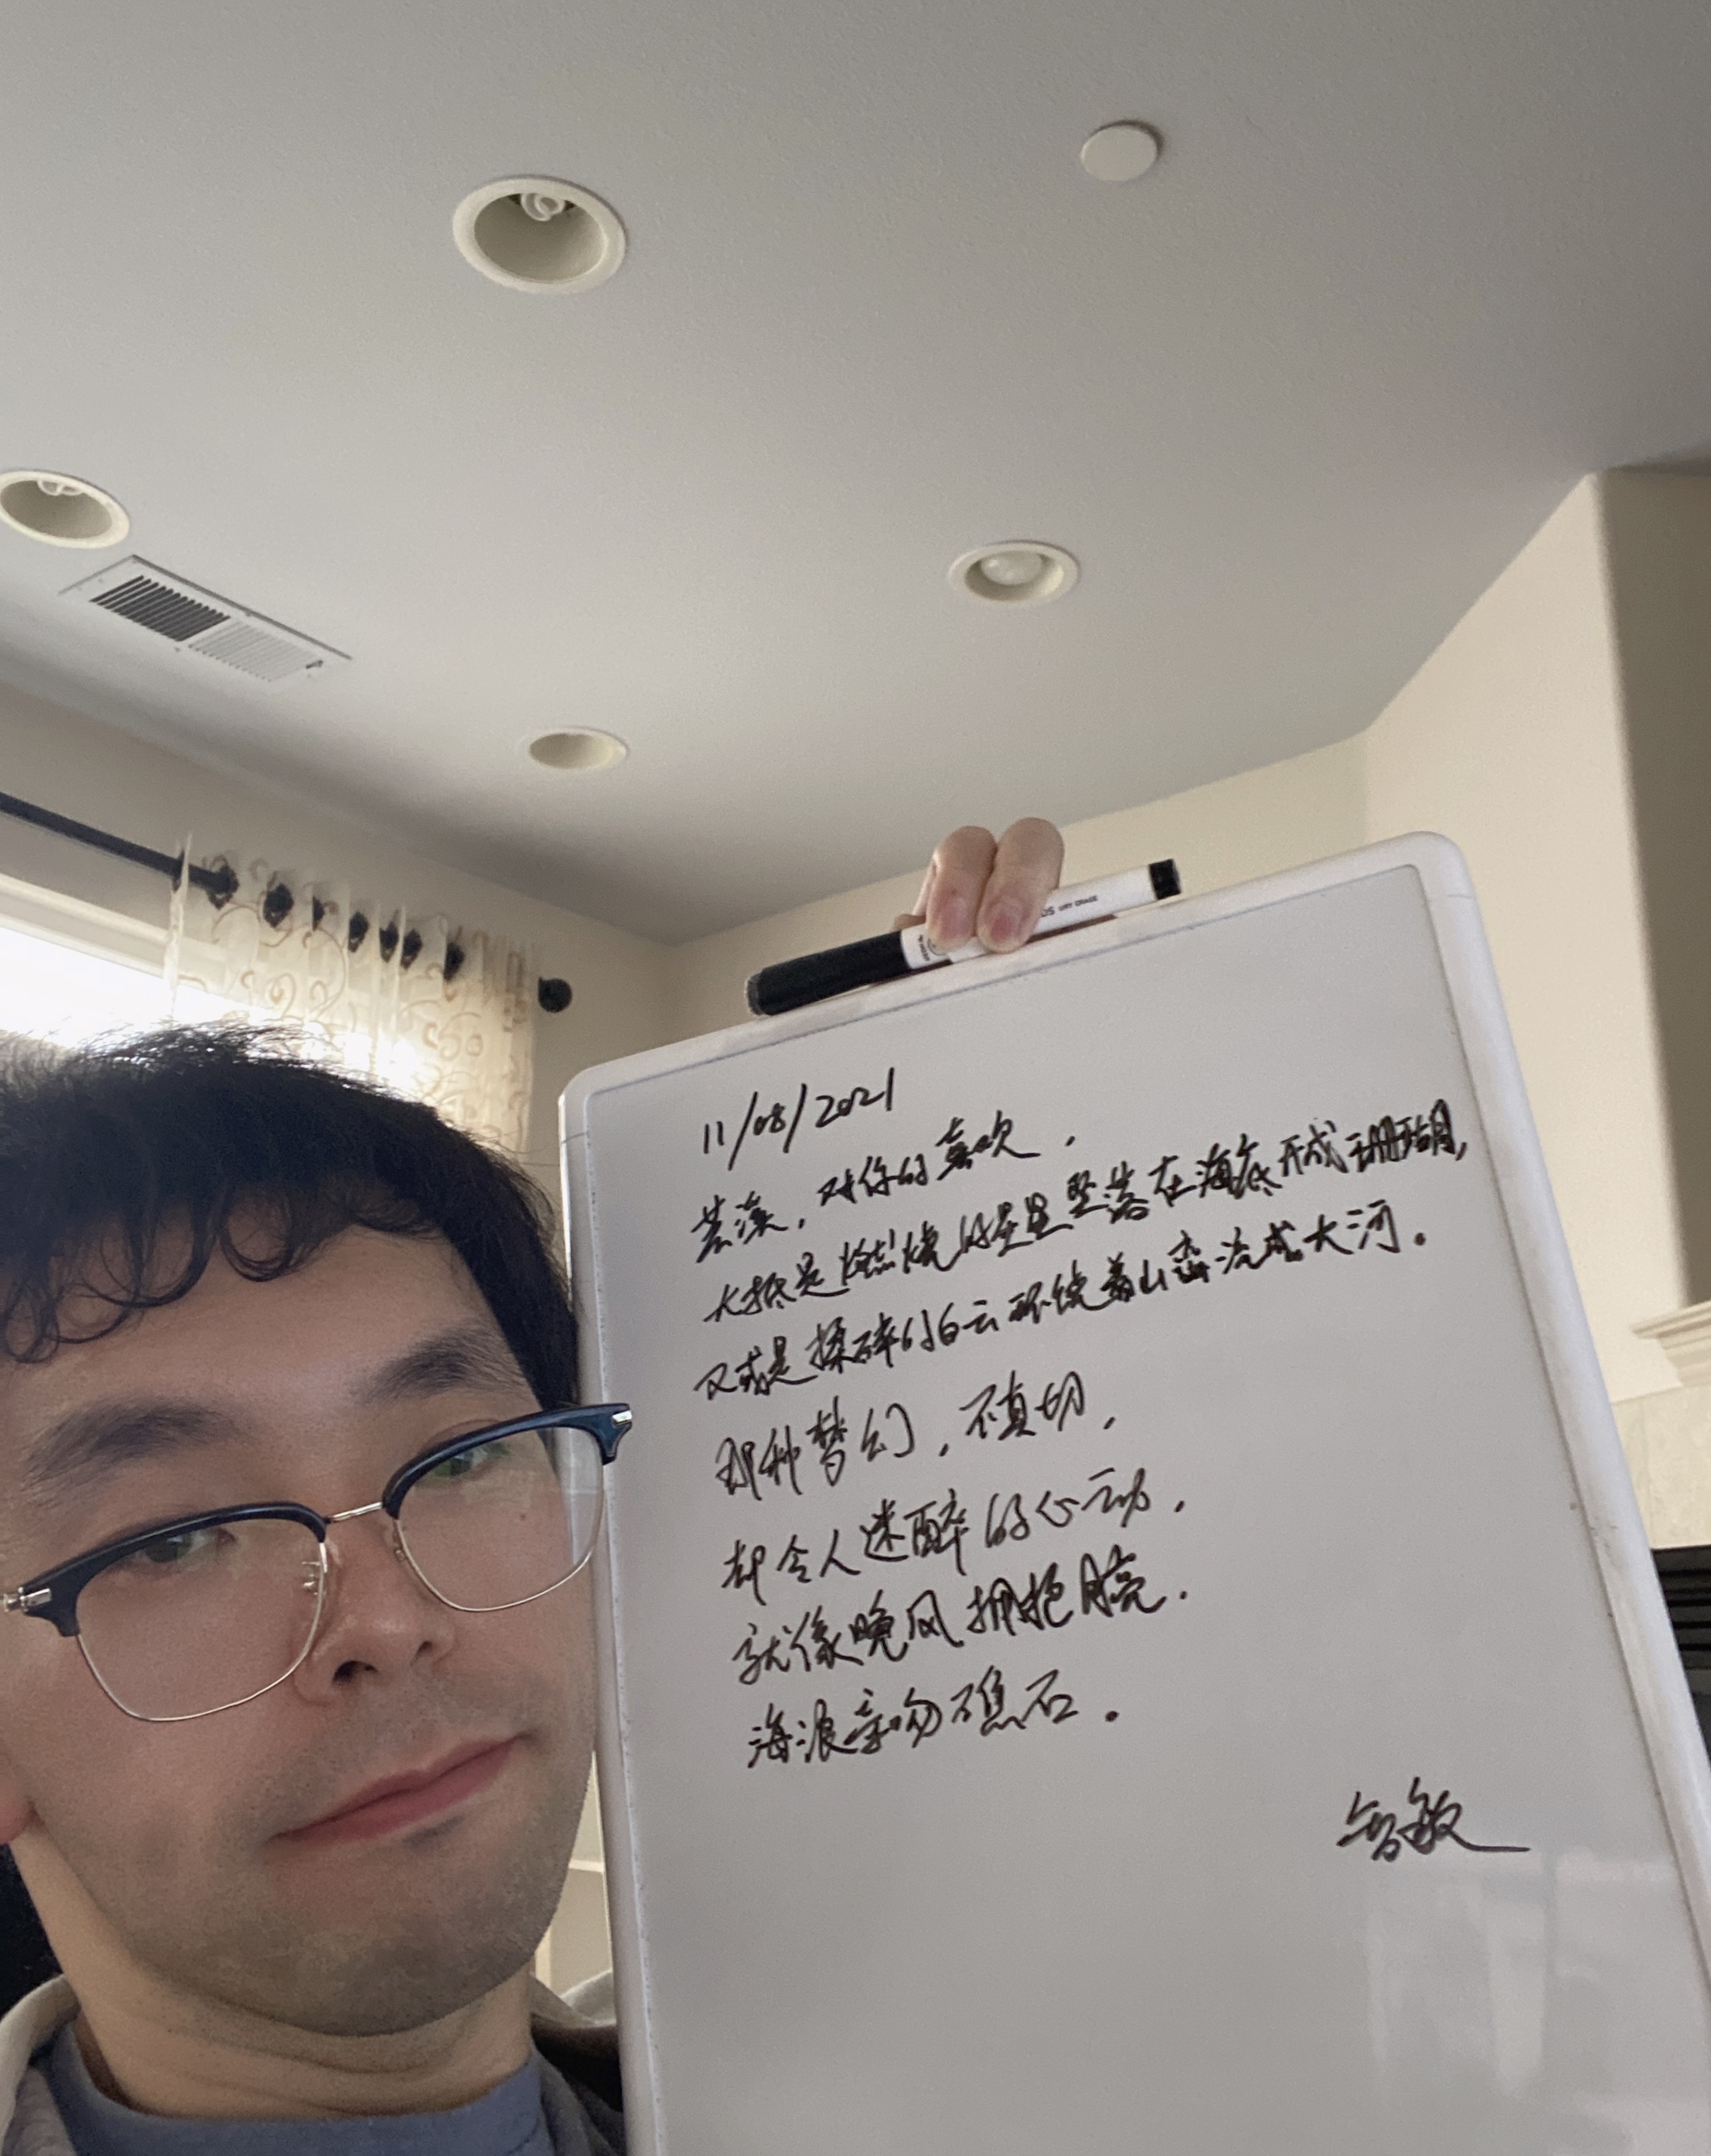 11/08/2021
芸溪，对你的喜欢，
大抵是燃烧的星星坠落在海底形成珊瑚，
又或是揉碎的白云环绕着山峦流成大河。
那种梦幻，不真切，
却令人迷醉的心动，
就像晚风拥抱月亮，
海浪亲吻礁石。